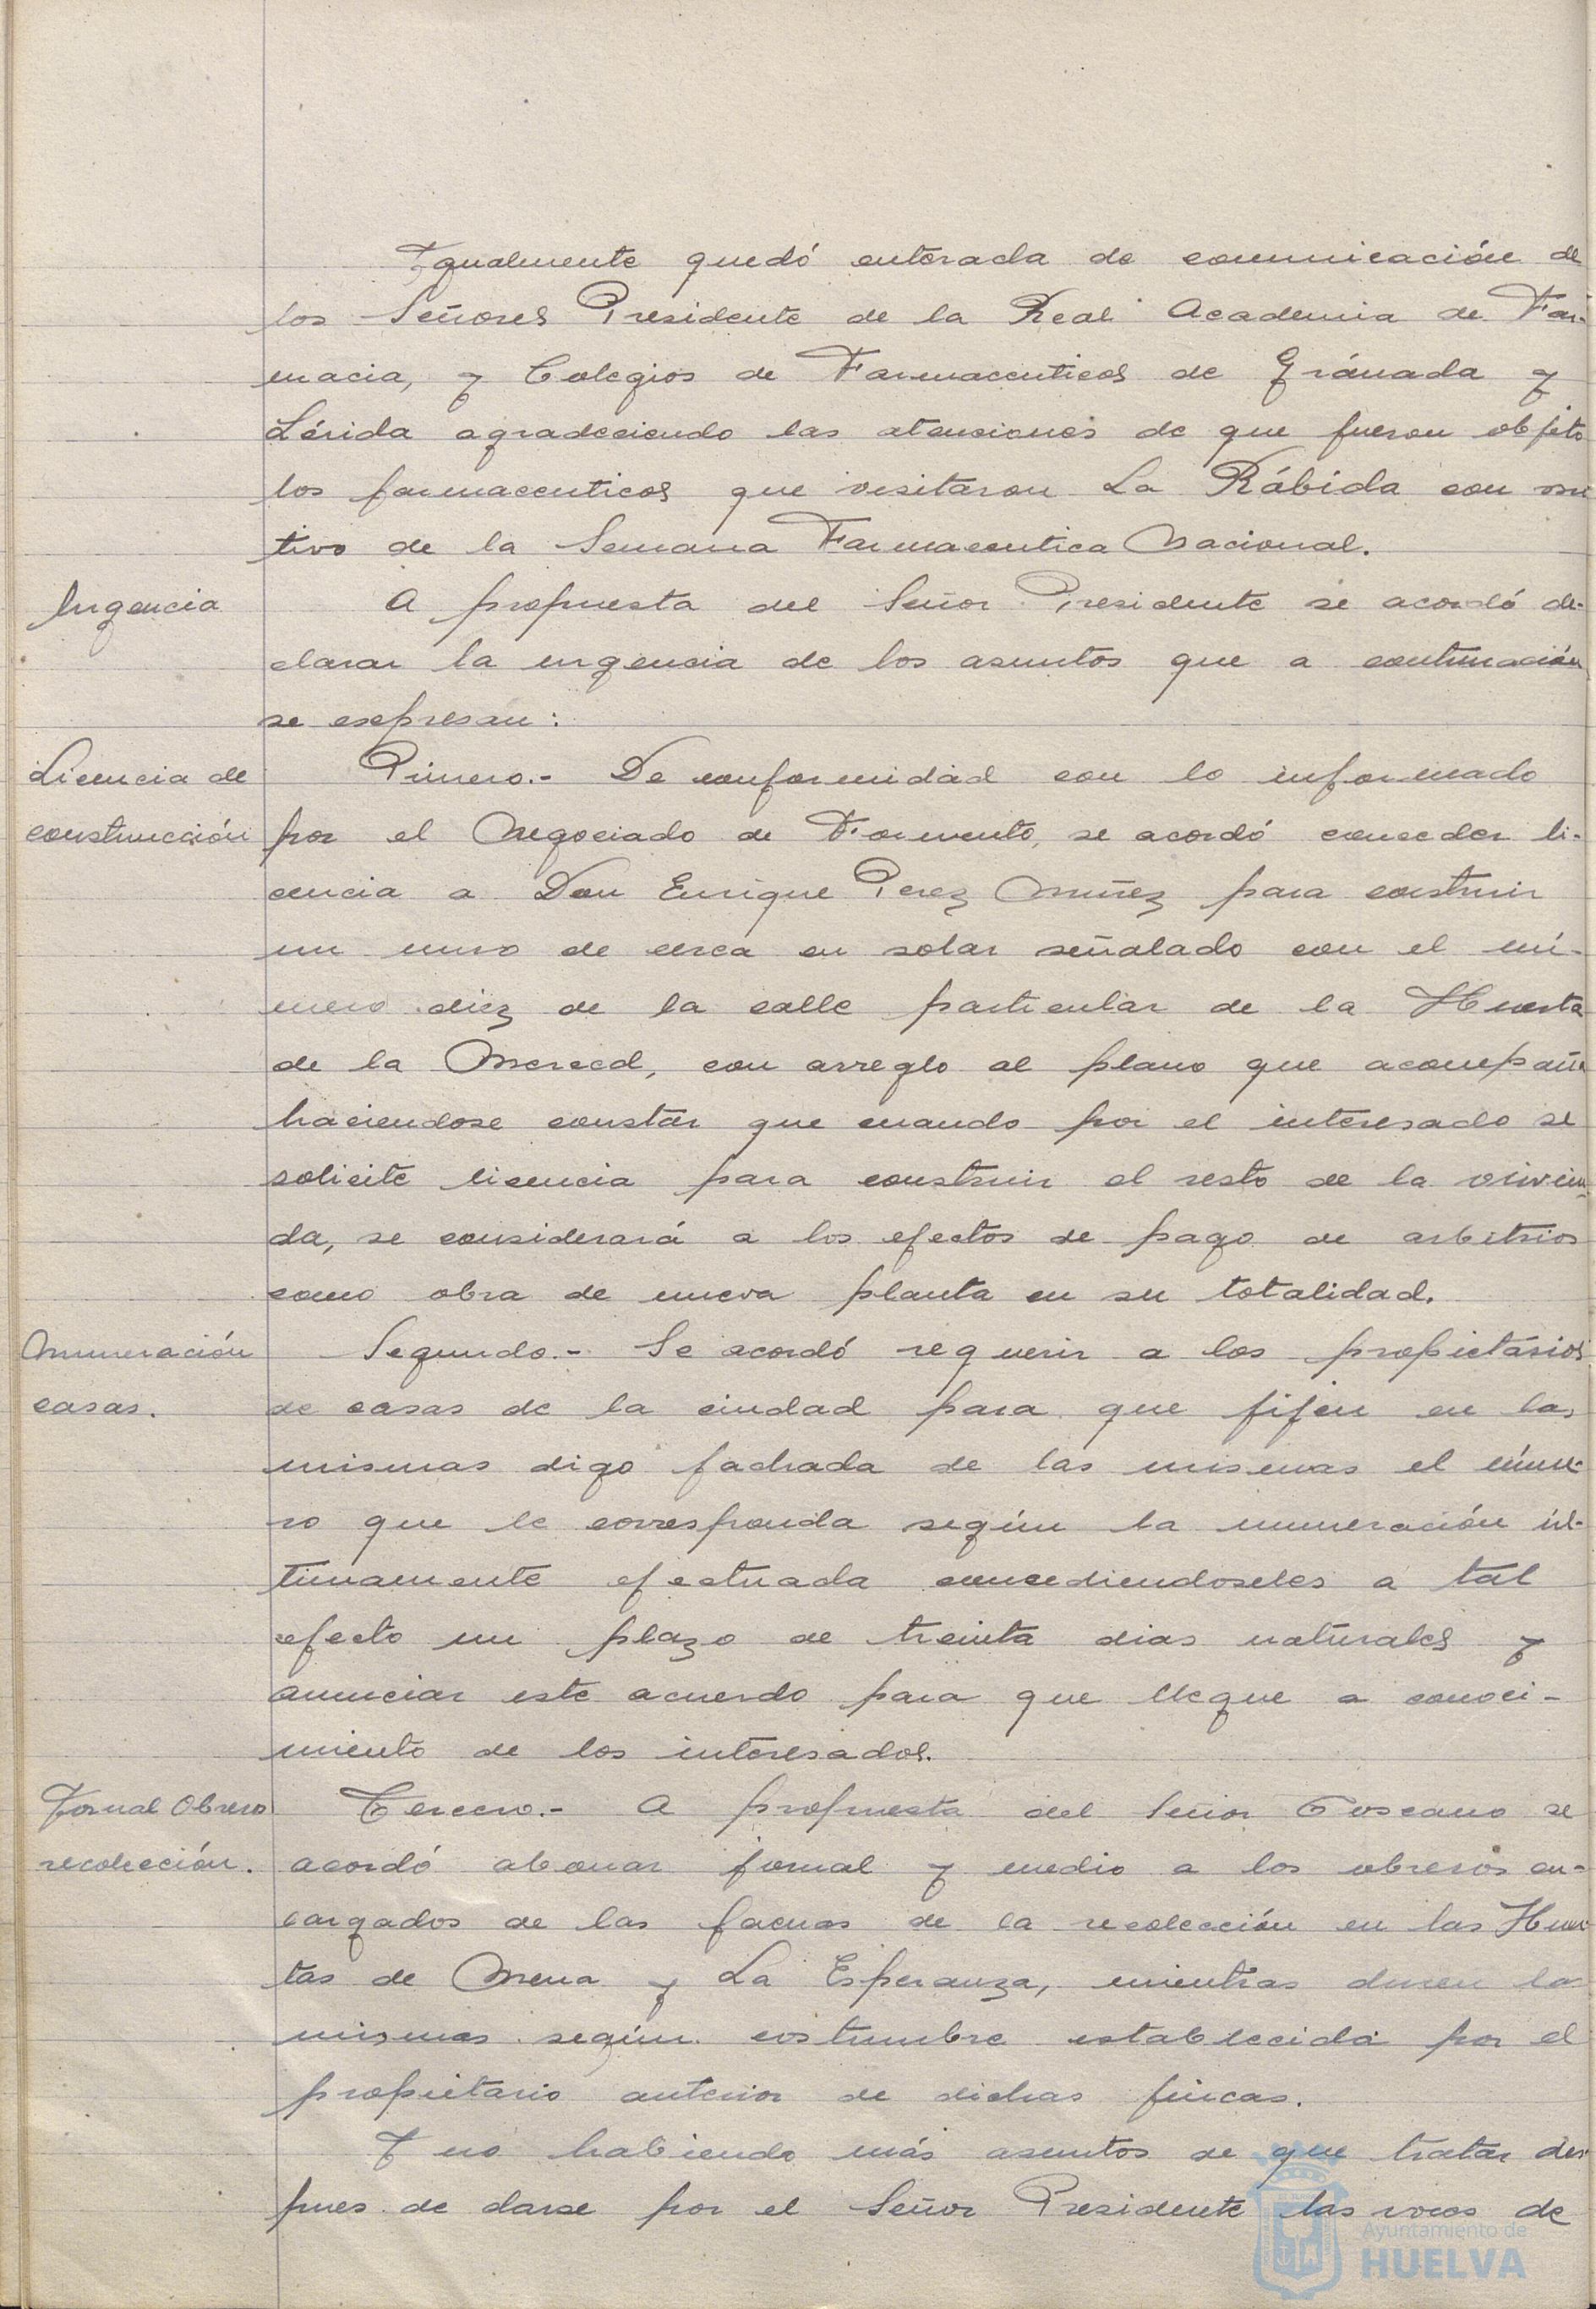 Igualmente quedó enterada de comunicación de
los Señores Presidente de la Real Academia de Far-
macia, y Colegios de Farmaceuticos de Gránada y
Lérida agradeciendo las atenciones de que fueron objeto
los farmaceuticos que visitaron La Rábida con mo
tivo de la Semana Farmaceutica Nacional.
Urgencia
A propuesta del Señor Presidente se acordó de-
clarar la urgencia de los asuntos que a continuación
se expresan:
Licencia de
construcción
Primero.- De conformidad con lo informado
por el Negociado de Fomento, se acordó conceder li-
cencia a Don Enrique Perez Nuñez para construir
un muro de cerca en solar señalado con el nú-
mero diez de la calle particular de la Huerta
de la Merced, con arreglo al plano que acompaña
haciendose constar que cuando por el interesado se
solicite licencia para construir el resto de la vivien-
da, se considerará a los efectos de pago de arbitrios
como obra de nueva planta en su totalidad.
Numeración
casas.
Segundo.- Se acordó requerir a los propietarios
de casas de la ciudad para que fijen en las
mismas digo fachada de las mismas el núme-
ro que le corresponda según la numeración úl-
timamente efectuada concediendoseles a tal
efecto un plazo de treinta dias naturales y
anunciar este acuerdo para que llegue a conoci-
miento de los interesados.
Jornal Obrero
recolección.
Tercero.- A propuesta del Señor Toscano se
acordó abonar jornal y medio a los obreros en-
cargados de las faenas de la recolección en las Huer
tas de Mena y La Esperanza, mientras duren las
mismas según costumbre establecida por el
propietario anterior de dichas fincas.
Y no habiendo más asuntos de que tratar des-
pues de darse por el Señor Presidente las voces de
Ayuntamiento de
HUELVA